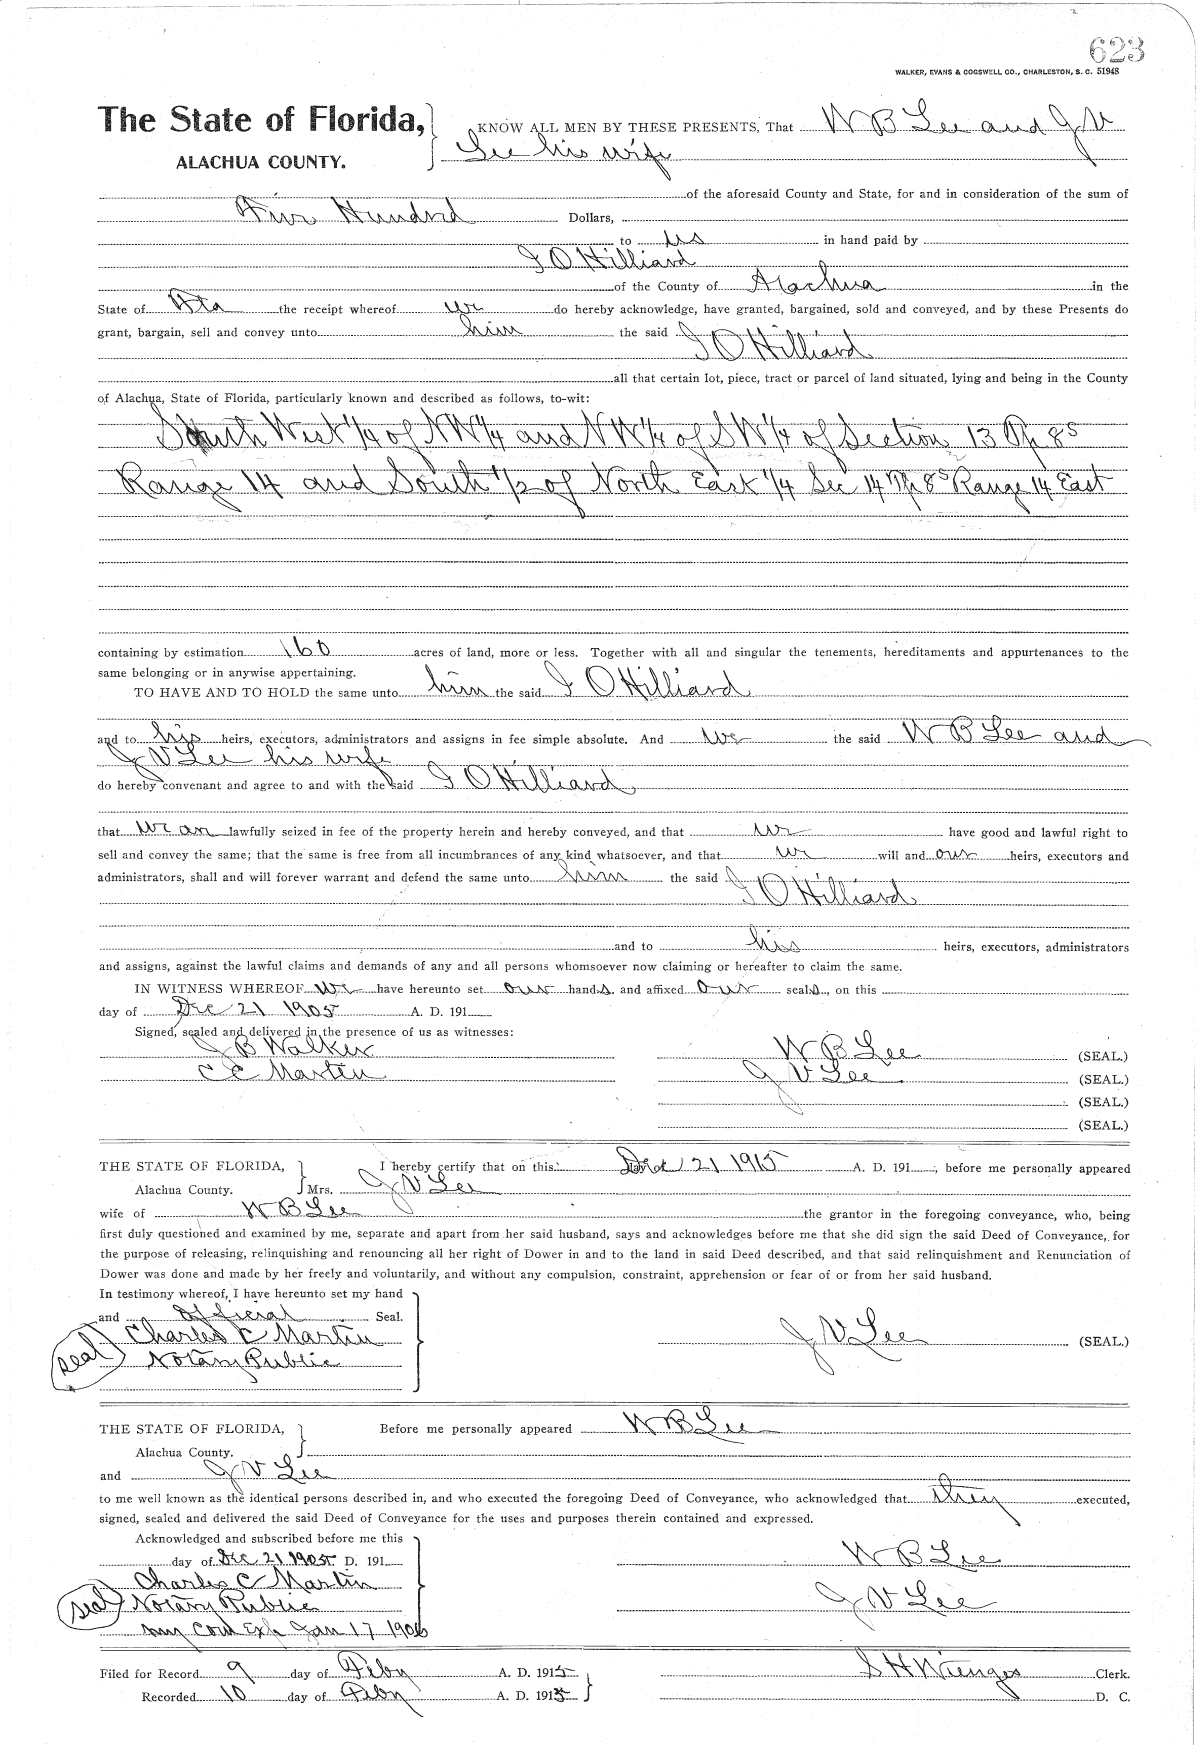 623
WALKER, EVANS & COGSWELL CO., CHARLESTON, S. C. 51948
The State of Florida,
ALACHUA COUNTY.
KNOW ALL MEN BY THESE PRESENTS, That W B Lee and J V
Lee his wife
of the aforesaid County and State, for and in consideration of the sum of
Five Hundred Dollars,
to us in hand paid by
J O Hilliard
of the County of Alachua in the
State of Fla the receipt whereof we do hereby acknowledge, have granted, bargained, sold and conveyed, and by these Presents do
grant, bargain, sell and convey unto him the said J O Hilliard
all that certain lot, piece, tract or parcel of land situated, lying and being in the County
of Alachua, State of Florida, particularly known and described as follows, to-wit:
South West 1/4 of NW 1/4 and NW 1/4 of SW 1/4 of Section 13 Tp 8 S
Range 14 and South 1/2 of North East 1/4 Sec 14 Tp 8 S Range 14 East
containing by estimation 160 acres of land, more or less. Together with all and singular the tenements, hereditaments and appurtenances to the
same belonging or in anywise appertaining.
TO HAVE AND TO HOLD the same unto him the said J O Hilliard
and to his heirs, executors, administrators and assigns in fee simple absolute. And we the said W B Lee and
J V Lee his wife
do hereby convenant and agree to and with the said J O Hilliard
that we are lawfully seized in fee of the property herein and hereby conveyed, and that we have good and lawful right to
sell and convey the same; that the same is free from all incumbrances of any kind whatsoever, and that we will and our heirs, executors and
administrators, shall and will forever warrant and defend the same unto him the said J O Hilliard
and to his heirs, executors, administrators
and assigns, against the lawful claims and demands of any and all persons whomsoever now claiming or hereafter to claim the same.
IN WITNESS WHEREOF we have hereunto set our hands and affixed our seals, on this
day of Dec 21 1905 A. D. 191
Signed, sealed and delivered in the presence of us as witnesses:
J B Walker W B Lee (SEAL.)
C C Martin J V Lee (SEAL.)
(SEAL.)
(SEAL.)
THE STATE OF FLORIDA, I hereby certify that on this Dec 21 1915 A. D. 191, before me personally appeared
Alachua County. Mrs. J V Lee
wife of W B Lee the grantor in the foregoing conveyance, who, being
first duly questioned and examined by me, separate and apart from her said husband, says and acknowledges before me that she did sign the said Deed of Conveyance, for
the purpose of releasing, relinquishing and renouncing all her right of Dower in and to the land in said Deed described, and that said relinquishment and Renunciation of
Dower was done and made by her freely and voluntarily, and without any compulsion, constraint, apprehension or fear of or from her said husband.
In testimony whereof, I have hereunto set my hand
and official Seal.
Charles C Martin J V Lee (SEAL.)
seal Notary Public
THE STATE OF FLORIDA, Before me personally appeared W B Lee
Alachua County.
and J V Lee
to me well known as the identical persons described in, and who executed the foregoing Deed of Conveyance, who acknowledged that they executed,
signed, sealed and delivered the said Deed of Conveyance for the uses and purposes therein contained and expressed.
Acknowledged and subscribed before me this
day of Dec 21 1905 D. 191 W B Lee
Charles C Martin
seal Notary Public J V Lee
my Com Exp Jan 17 1906
Filed for Record 9 day of Feby A. D. 1915 S H Wienges Clerk.
Recorded 10 day of Feby A. D. 1915 D. C.